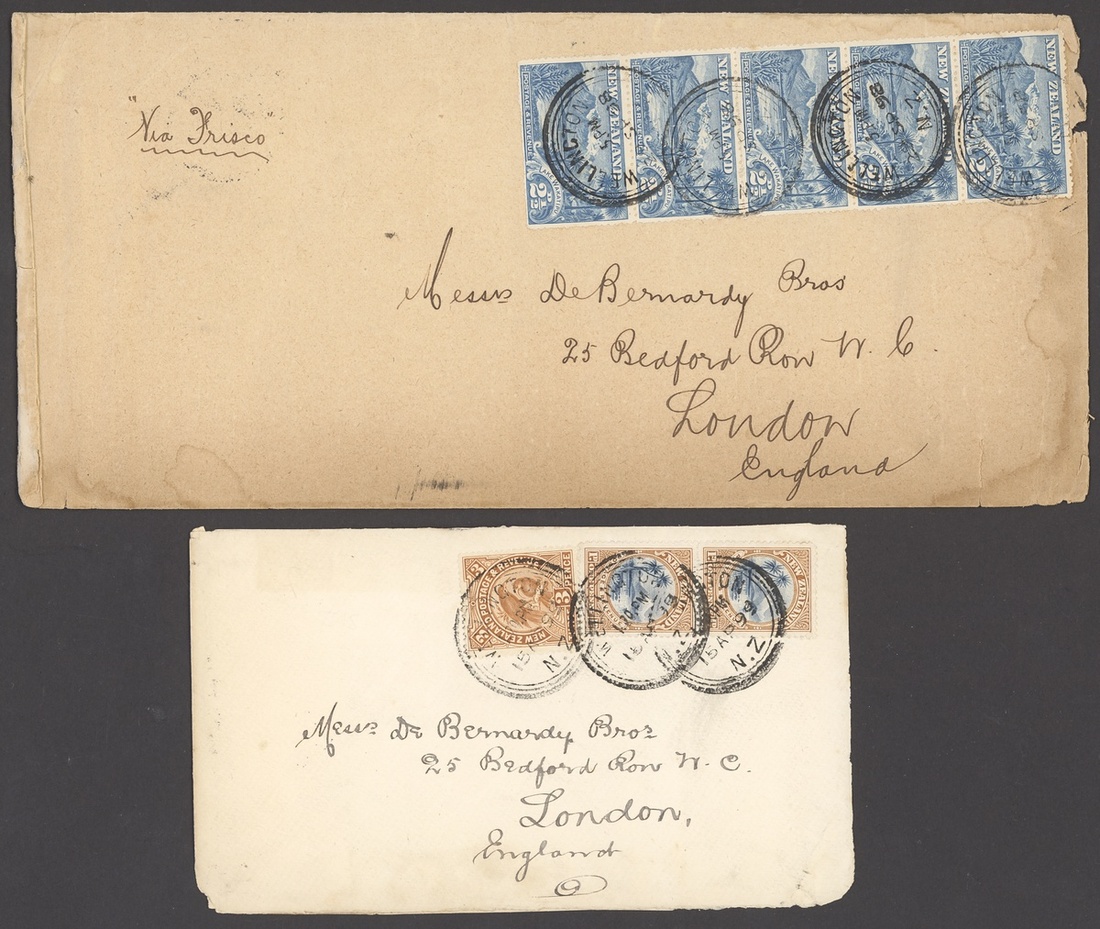 "Via Frisco"
NEW ZEALAND
NEW ZEALAND
NEW ZEALAND
NEW ZEALAND
NEW ZEALAND
2½
2½
WELLINGTON
5 PM
WELLINGTON
N.Z
Messrs De Bernardy Bros
25 Bedford Row W. C.
London
England
3 NEW ZEALAND POSTAGE & REVENUE 3 PENCE
NEW ZEALAND
NEW ZEALAND
WELLINGTON
N.Z
15 AP 99
N.Z
Messrs De Bernardy Bros
25 Bedford Row W. C.
London,
England